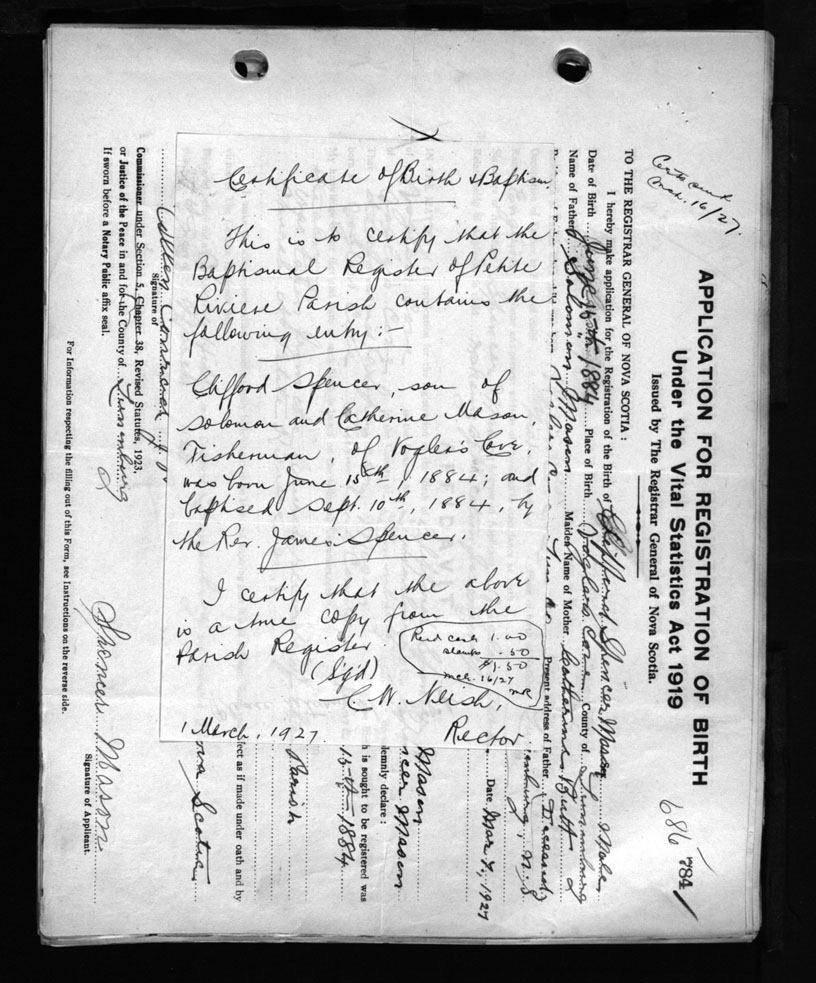 Certificate of Birth & Baptism
This is to certify that the
Baptismal Register of Petite
Riviere Parish contains the
following entry:-
Clifford Spencer, son of
Solomon and Catherine Mason,
Fisherman, of Vogler's Cove,
was born June 15th, 1884; and
baptised Sept. 10th, 1884, by
the Rev. James Spencer.
I certify that the above
is a true copy from the
Parish Register.
(Sg'd)
C. W. Neish,
1 March, 1927. Rector
1.00
stamps .50
$1.50
16/27
APPLICATION FOR REGISTRATION OF BIRTH
Under the Vital Statistics Act 1919
Issued by The Registrar General of Nova Scotia.
686
784
16/27.
TO THE REGISTRAR GENERAL OF NOVA SCOTIA:
I hereby make application for the Registration of the Birth of Clifford Spencer Mason Male
Date of Birth June 15th 1884 Place of Birth Cove County of Lunenburg
Name of Father Solomon Mason Maiden Name of Mother Catherine
Present address of Father Deceased
N.S
Date Mar 7, 1927
Mason
ncer Mason
lemnly declare:
h is sought to be registered was
1884
Parish
ect as if made under oath and by
ova Scotia
Signature of
Commissioner under Section 5, Chapter 38, Revised Statutes, 1923,
or Justice of the Peace in and for the County of Lunenburg
If sworn before a Notary Public affix seal.
Spencer Mason
Signature of Applicant.
For Information respecting the filling out of this Form, see Instructions on the reverse side.